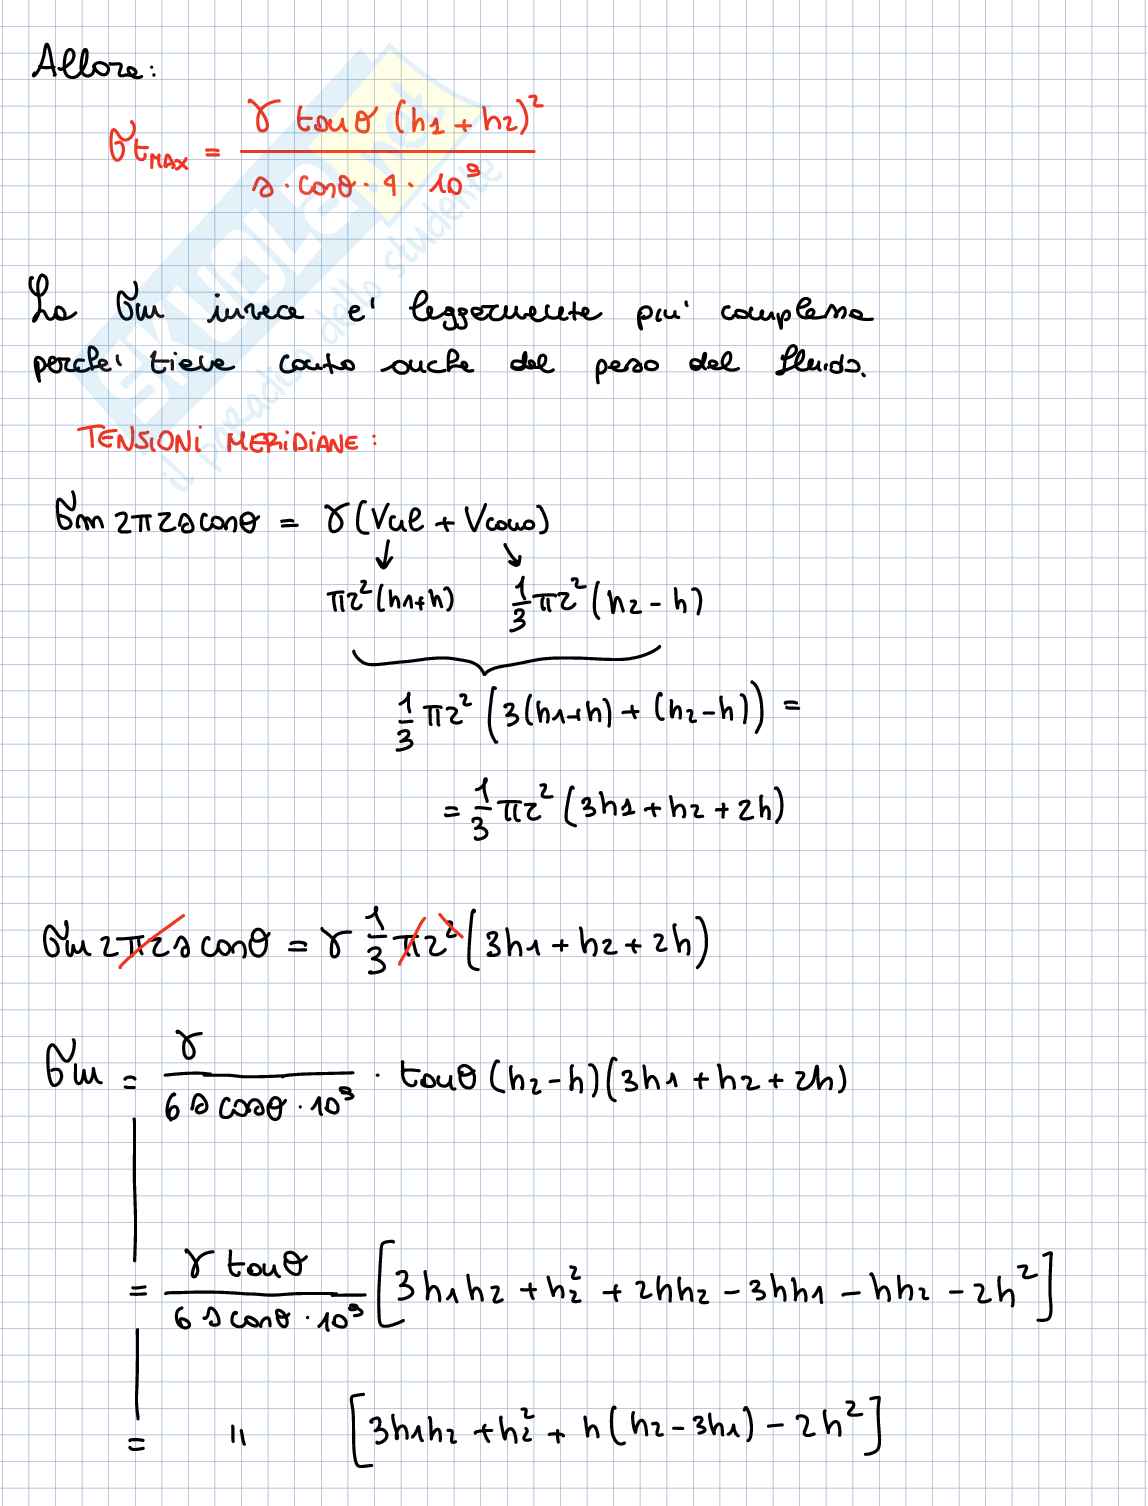 Allora:
σt_MAX = γ tanθ (h1 + h2)² / s · cosθ · 4 · 10⁹
La σm invece e' leggermente piu' complessa
perche' tiene conto anche del peso del fluido.
TENSIONI MERIDIANE:
σm 2πrs cosθ = γ (Vcil + Vcono)
↓ ↘
πr² (h1+h) 1/3 πr² (h2 - h)
1/3 πr² (3(h1+h) + (h2-h)) =
= 1/3 πr² (3h1 + h2 + 2h)
σm 2πrs cosθ = γ 1/3 πr² (3h1 + h2 + 2h)
σm = γ / 6 s cosθ · 10⁹ · tanθ (h2 - h)(3h1 + h2 + 2h)
= γ tanθ / 6 s cosθ · 10⁹ [3h1h2 + h2² + 2hh2 - 3hh1 - hh2 - 2h²]
= " [3h1h2 + h2² + h(h2 - 3h1) - 2h²]
SKUOLA.net
il paradiso dello studente